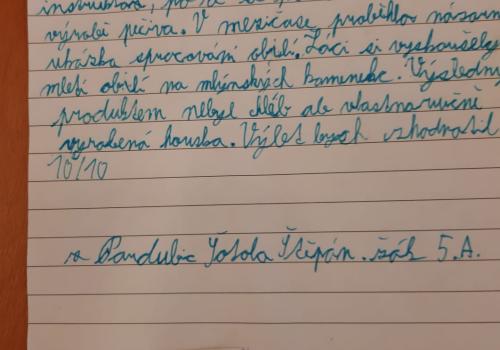 instruktora, po
výrobě pečiva. V mezičase proběhla názorn
ukázka zpracování obilí. Žáci si vyzkoušely
mletí obilí na mlýnských kamenech. Výsledný
produktem nebyl chléb ale vlastnoručně
vyrobená houska. Výlet bych zhodnotil
10/10
z Pardubic Šotola Štěpán. žák 5.A.